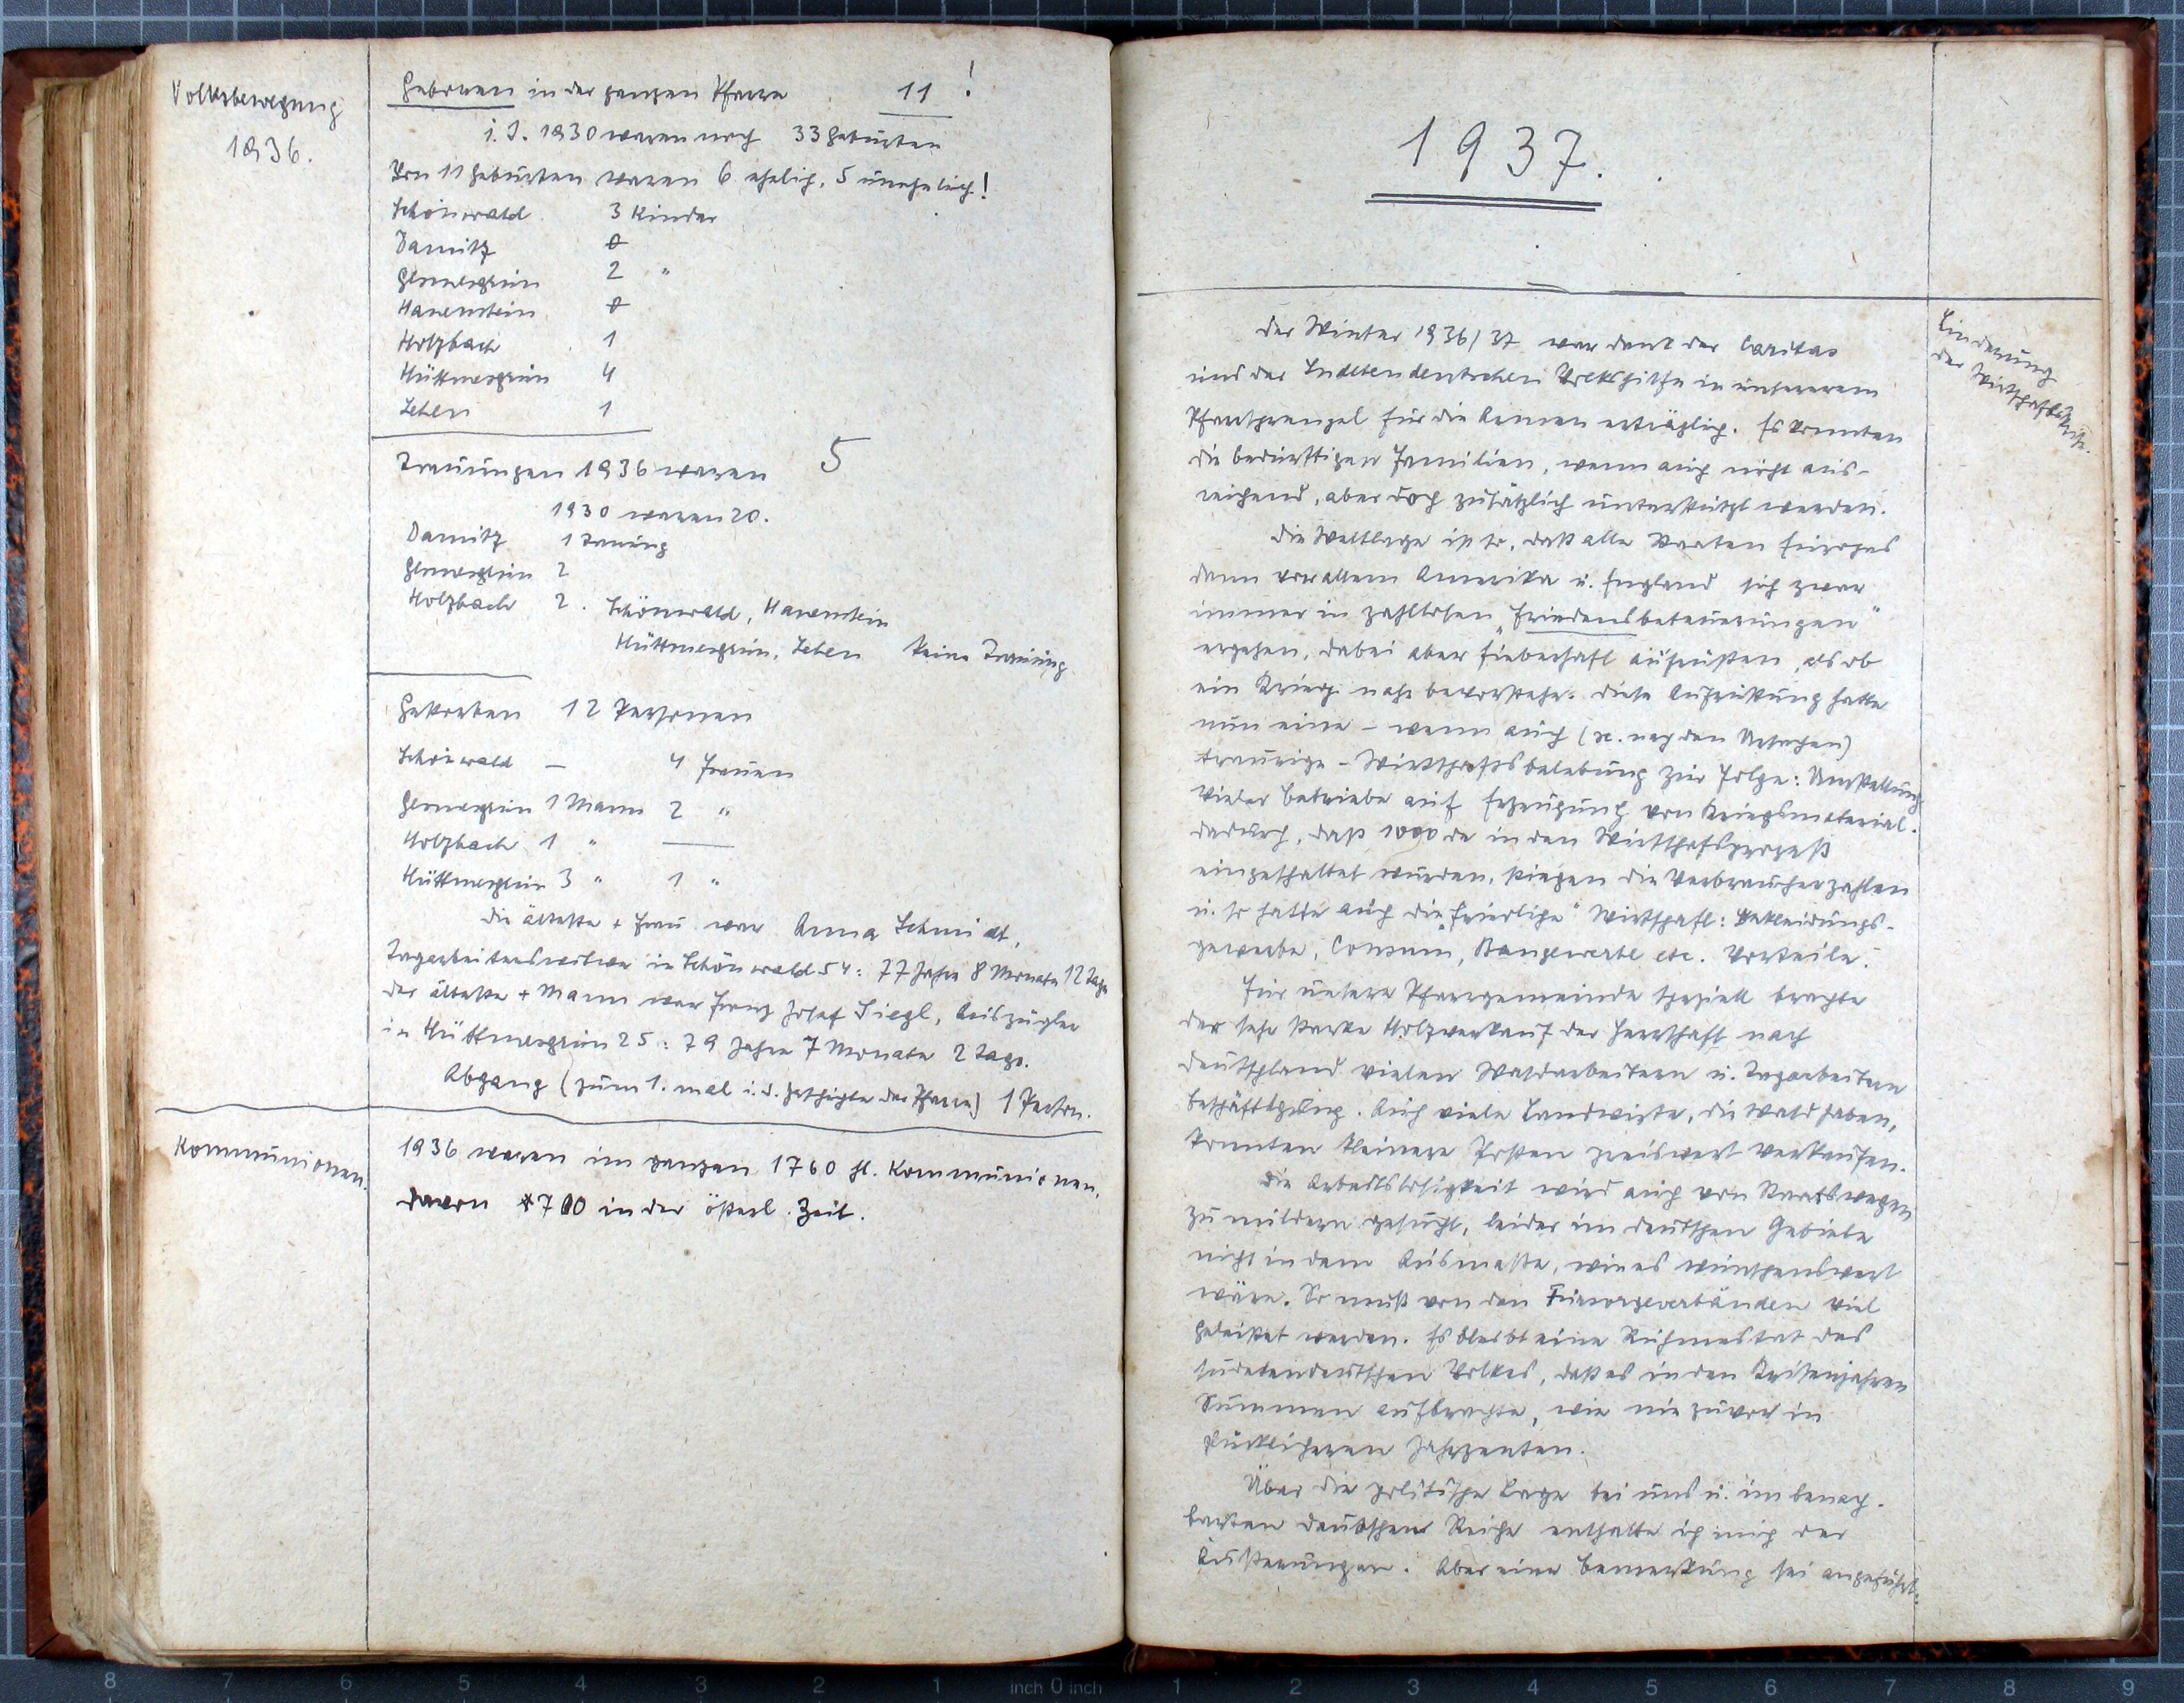 Volksbewegung
1936.
Geboren in der ganzen Pfarre 11!
i. J. 1930 waren noch 33 Geburten
Von 11 Geburten waren 6 ehelich, 5 unehelich!
Schönwald 3 Kinder
Damitz 0
Gesmesgrün 2 "
Hauenstein 0
Holzbach 1
Hüttmesgrün 4
Leten 1
Trauungen 1936 waren 5
1930 waren 20.
Damitz 1 Trauung
Gesmesgrün 2
Holzbach 2. Schönwald, Hauenstein
Hüttmesgrün, Leten keine Trauung
Gestorben 12 Personen
Schönwald — 4 Frauen
Gesmesgrün 1 Mann 2 "
Holzbach 1 " —
Hüttmesgrün 3 " 1 "
Die älteste + Frau war Anna Schmidt,
Tagarbeiterswitwe in Schönwald 54: 77 Jahre 8 Monate 12 Tage
der älteste + Mann war Franz Josef Siegl, Auszügler
in Hüttmesgrün 25: 79 Jahre 7 Monate 2 Tage.
Abgang (zum 1. mal i. d. Geschichte der Pfarre) 1 Person.
Kommunionen.
1936 waren im ganzen 1760 hl. Kommunionen,
davon 700 in der österl. Zeit.
1937.
Linderung
der Wirtschaftskrise.
Der Winter 1936/37 war dank der Caritas
und der Sudetendeutschen Volkshilfe in unserem
Pfarrsprengel für die Armen erträglich. Es konnten
die bedürftigen Familien, wenn auch nicht aus-
reichend, aber doch zusätzlich unterstützt werden.
Die Weltlage ist so, daß alle Staaten Europas
dann vor allem Amerika u. England sich zwar
immer in zahllosen „Friedensbeteuerungen"
ergehen, dabei aber fieberhaft aufrüsten, als ob
ein Krieg nahe bevorstehe. Diese Aufrüstung hatte
nun eine – wenn auch (sc. nach den Ursachen)
traurige – Wirtschaftsbelebung zur Folge: Umstellung
vieler Betriebe auf Erzeugung von Kriegsmaterial.
Dadurch, daß 1000 de in den Wirtschaftsprozeß
eingeschaltet wurden, stiegen die Verbraucherzahlen
u. so hatte auch die „friedliche" Wirtschaft: Bekleidungs-
gewerbe, Consum, Baugewerbe etc. Vorteile.
Für unsere Pfarrgemeinde speziell brachte
der sehr starke Holzverkauf der Herrschaft nach
Deutschland vielen Waldarbeitern u. Tagarbeitern
Beschäftigung. Auch viele Landwirte, die Wald haben,
konnten kleinere Posten preiswert verkaufen.
Die Arbeitslosigkeit wird auch von Staatswegen
zu mildern gesucht, leider im deutschen Gebiete
nicht in dem Ausmaße, wie es wünschenswert
wäre. So muß von den Fürsorgeverbänden viel
geleistet werden. Es bleibt eine Ruhmestat des
sudetendeutschen Volkes, daß es in den Krisenjahren
Summen aufbrachte, wie nie zuvor in
glücklicheren Jahrzenten.
Über die politische Lage bei uns u. im benach-
barten Deutschen Reiche enthalte ich mich der
Äußerungen. Aber eine Bemerkung sei angeführt: